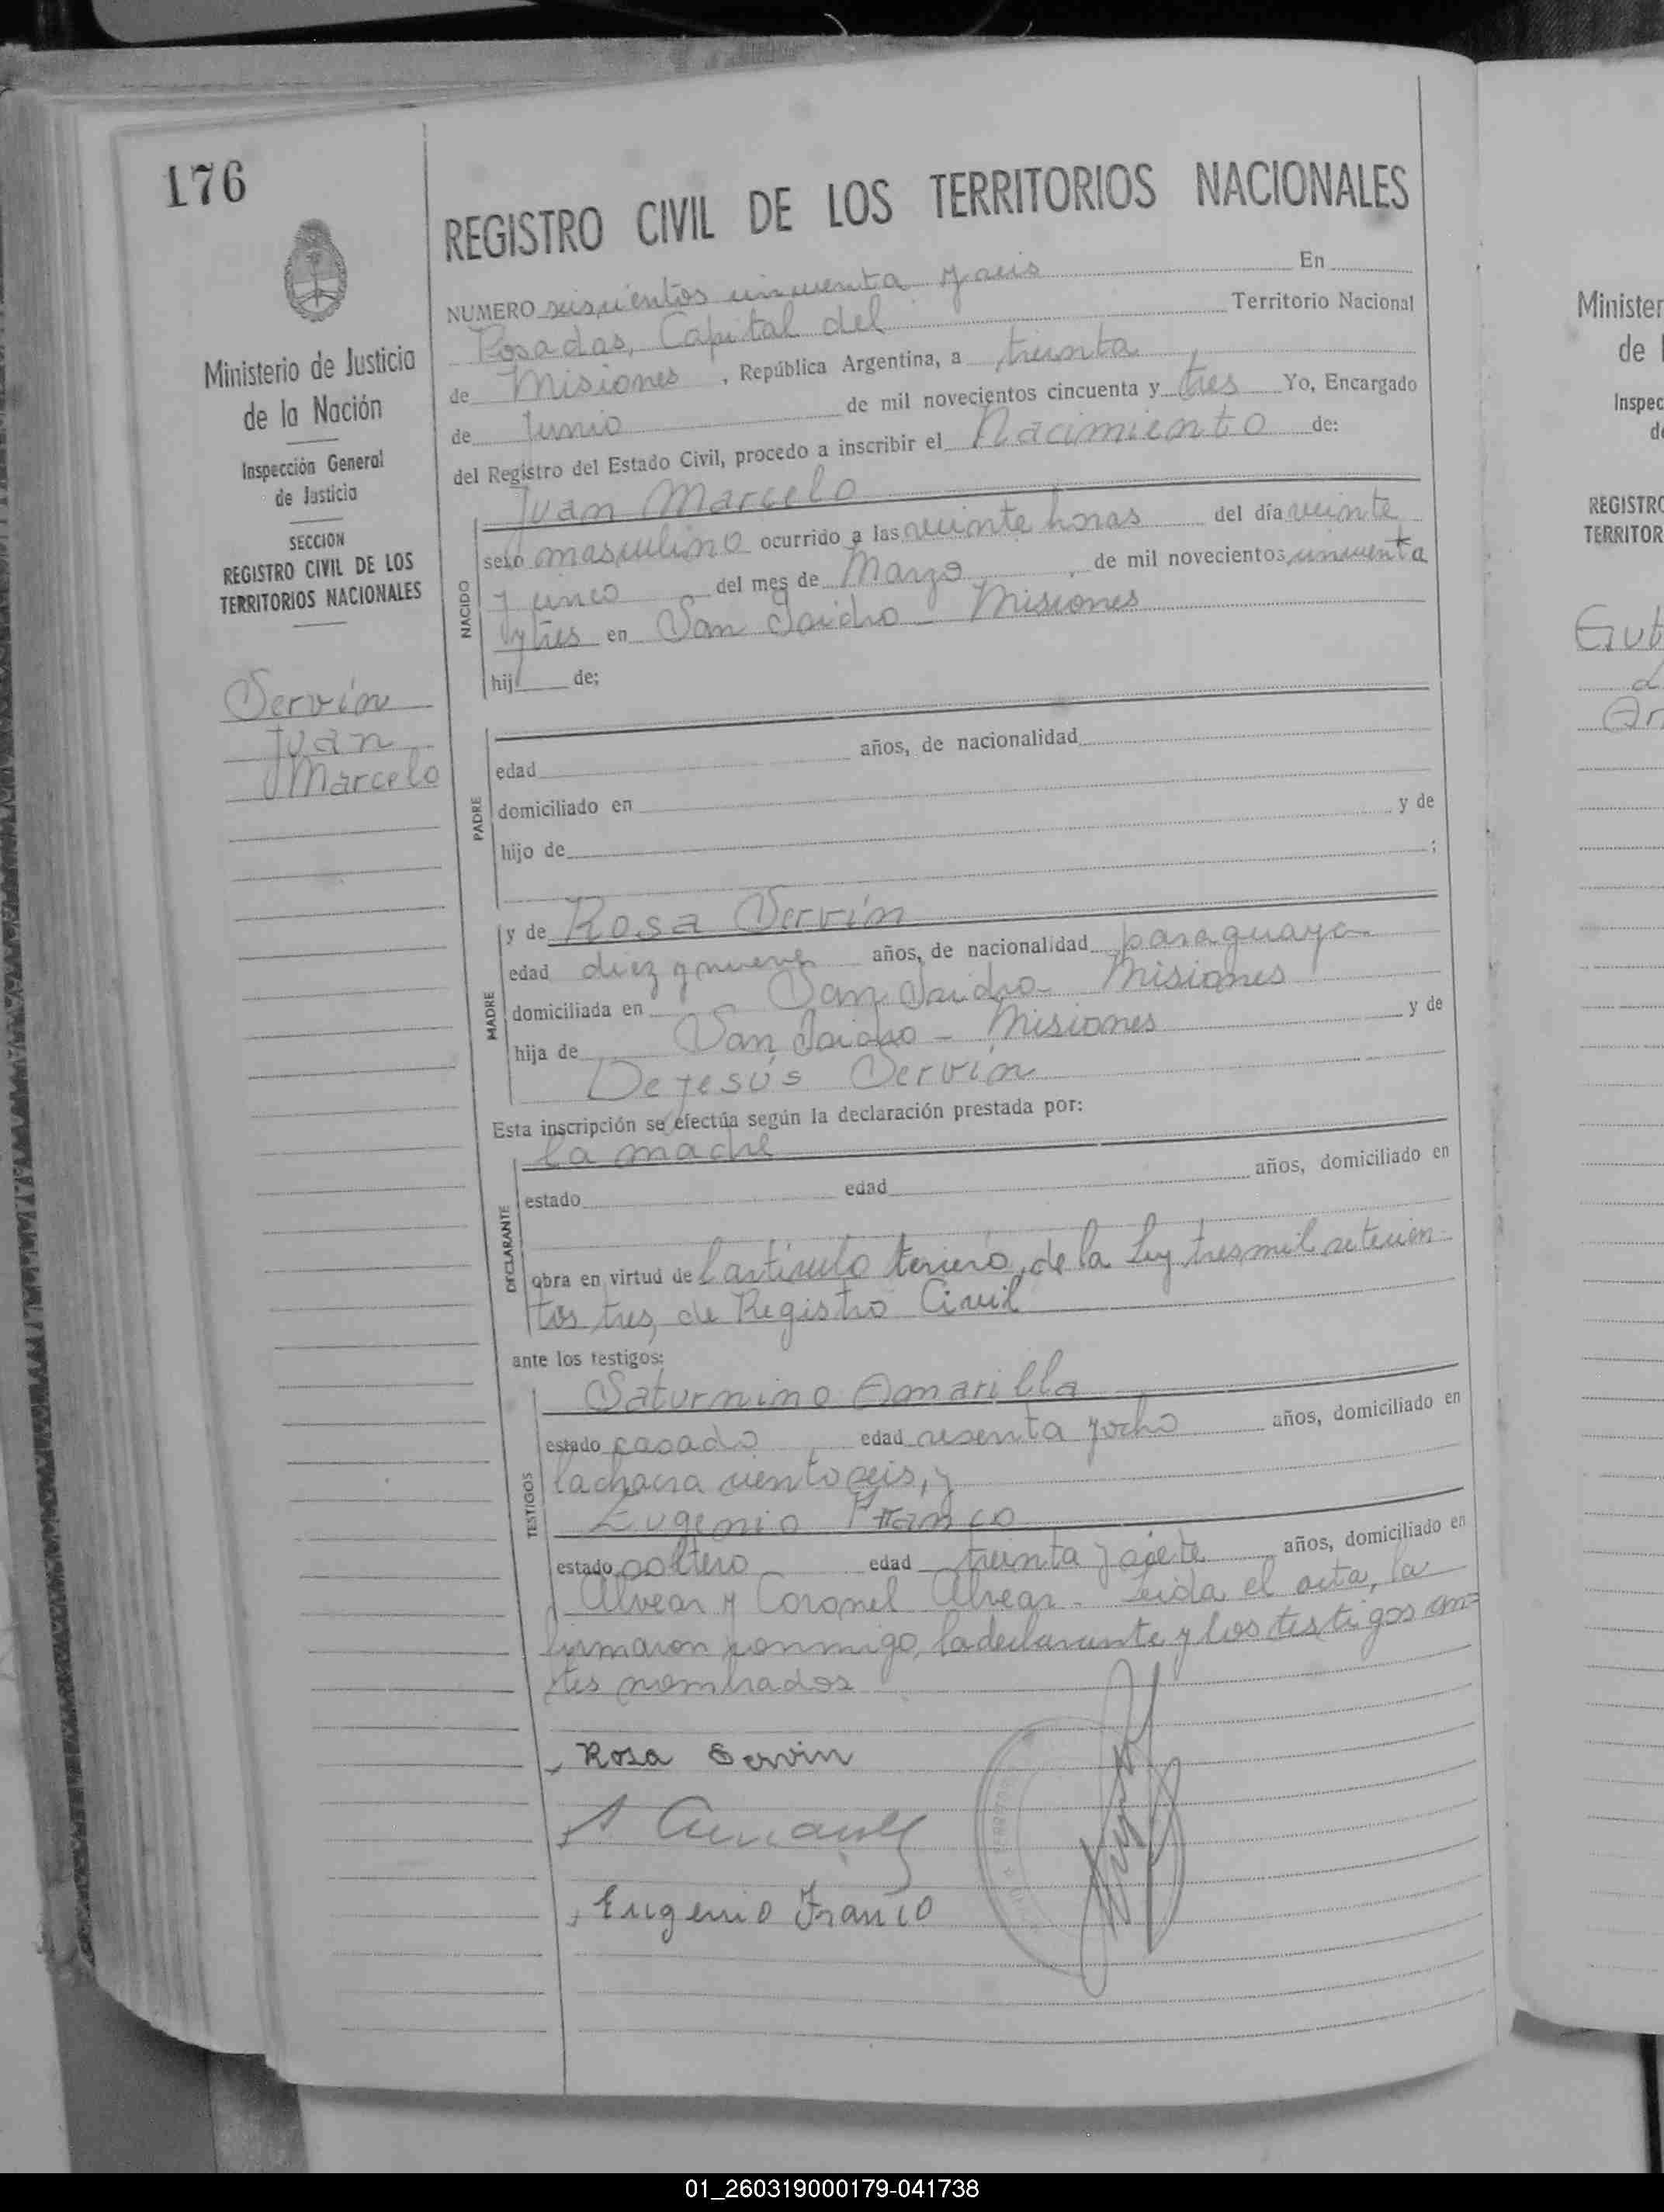 176
REGISTRO CIVIL DE LOS TERRITORIOS NACIONALES
Ministerio de Justicia
de la Nación
Inspección General
de Justicia
SECCION
REGISTRO CIVIL DE LOS
TERRITORIOS NACIONALES
Servín
Juan
Marcelo
NUMERO seiscientos cincuenta y seis En
Posadas, Capital del Territorio Nacional
de Misiones, República Argentina, a treinta
de Junio de mil novecientos cincuenta y tres Yo, Encargado
del Registro del Estado Civil, procedo a inscribir el Nacimiento de:
NACIDO
Juan Marcelo
sexo masculino ocurrido a las veinte horas del día veinte
y cinco del mes de Marzo, de mil novecientos cincuenta
y tres en San Isidro - Misiones
hij de:
PADRE
edad años, de nacionalidad
domiciliado en
hijo de y de
;
MADRE
y de Rosa Servín
edad diez y nueve años, de nacionalidad paraguaya
domiciliada en San Isidro - Misiones
hija de San Isidro - Misiones y de
De Jesús Servín
Esta inscripción se efectúa según la declaración prestada por:
DECLARANTE
la madre
estado edad años, domiciliado en
obra en virtud del artículo tercero, de la Ley tresmil setecien-
tos tres, de Registro Civil
ante los testigos:
TESTIGOS
Saturnino Amarilla
estado casado edad sesenta y ocho años, domiciliado en
la chacra ciento seis, y
Eugenio Franco
estado soltero edad treinta y siete años, domiciliado en
Alvear y Coronel Alvear. Leída el acta, la
firmaron conmigo, la declarante y los testigos an=
tes nombrados
Rosa Servin
Eugenio Franco
Minister
de l
Inspec
de
REGISTRO
TERRITOR
01_260319000179-041738